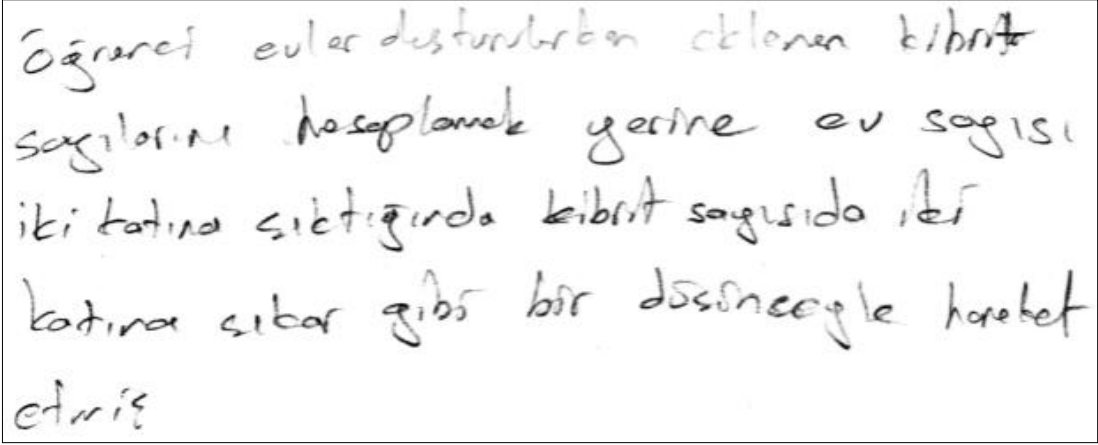 Öğrenci evler oluşturulurken eklenen kibrit
sayılarını hesaplamak yerine ev sayısı
iki katına çıktığında kibrit sayısıda iki
katına çıkar gibi bir düşünceyle hareket
etmiş